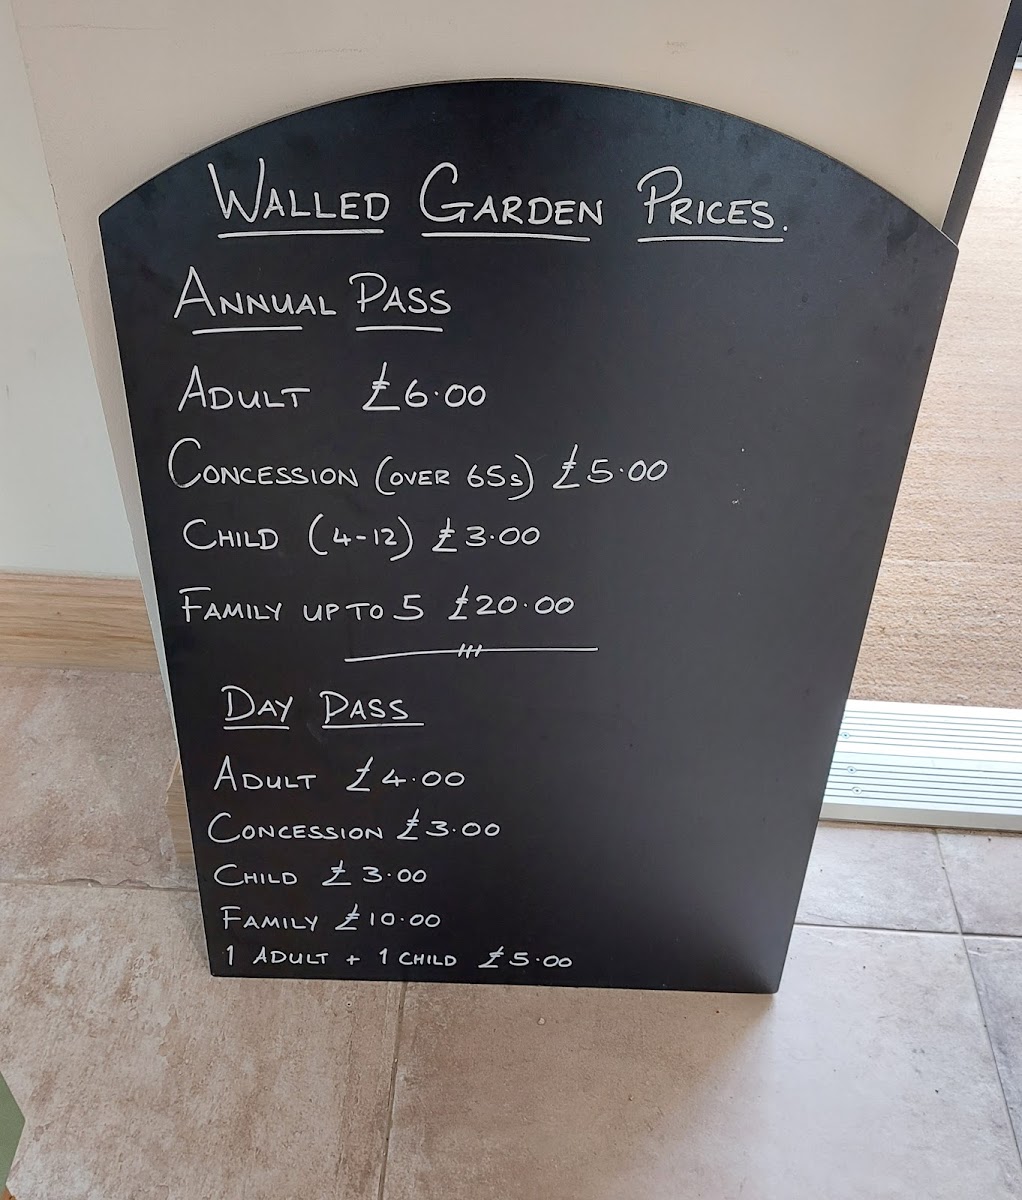 WALLED GARDEN PRICES.
ANNUAL PASS
ADULT £6.00
CONCESSION (OVER 65s) £5.00
CHILD (4-12) £3.00
FAMILY UP TO 5 £20.00
DAY PASS
ADULT £4.00
CONCESSION £3.00
CHILD £3.00
FAMILY £10.00
1 ADULT + 1 CHILD £5.00